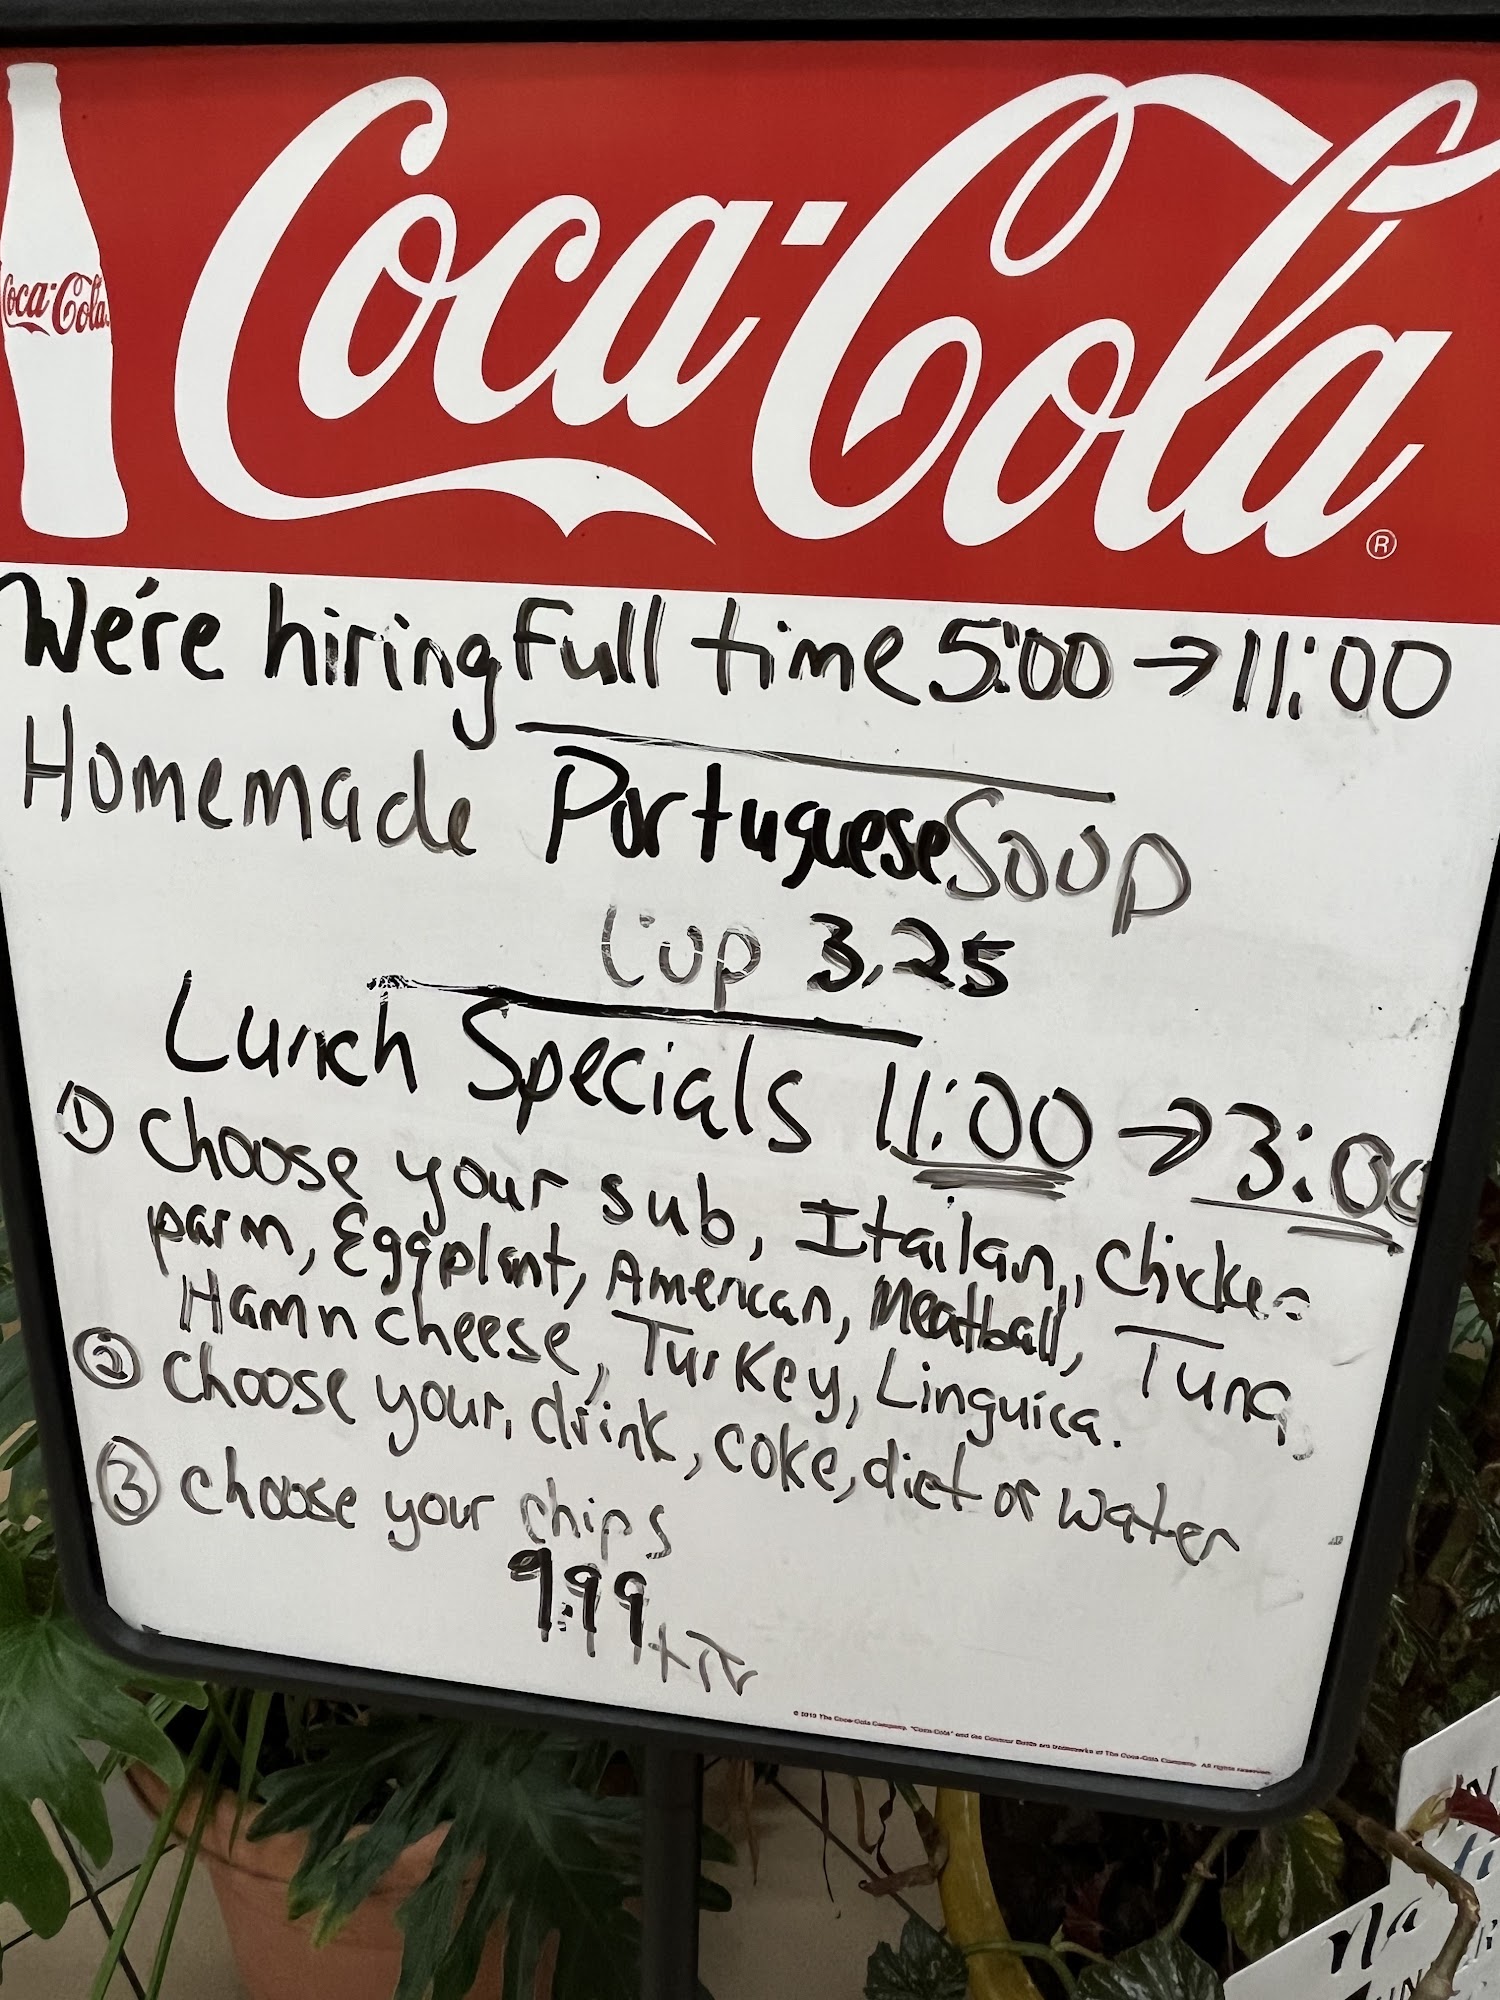 Coca-Cola
Coca-Cola ®
We're hiring Full time 5:00 → 11:00
Homemade Portuguese Soup
Cup 3.25
Lunch Specials 11:00 → 3:00
① choose your sub, Itailan, chicken
parm, Eggplant, American, Meatball, Tuna,
Ham n cheese, Turkey, Linguica.
② choose your, drink, coke, diet or water
③ choose your chips
9.99
© The Coca-Cola Company. "Coca-Cola" and the Contour Bottle are trademarks of The Coca-Cola Company. All rights reserved.